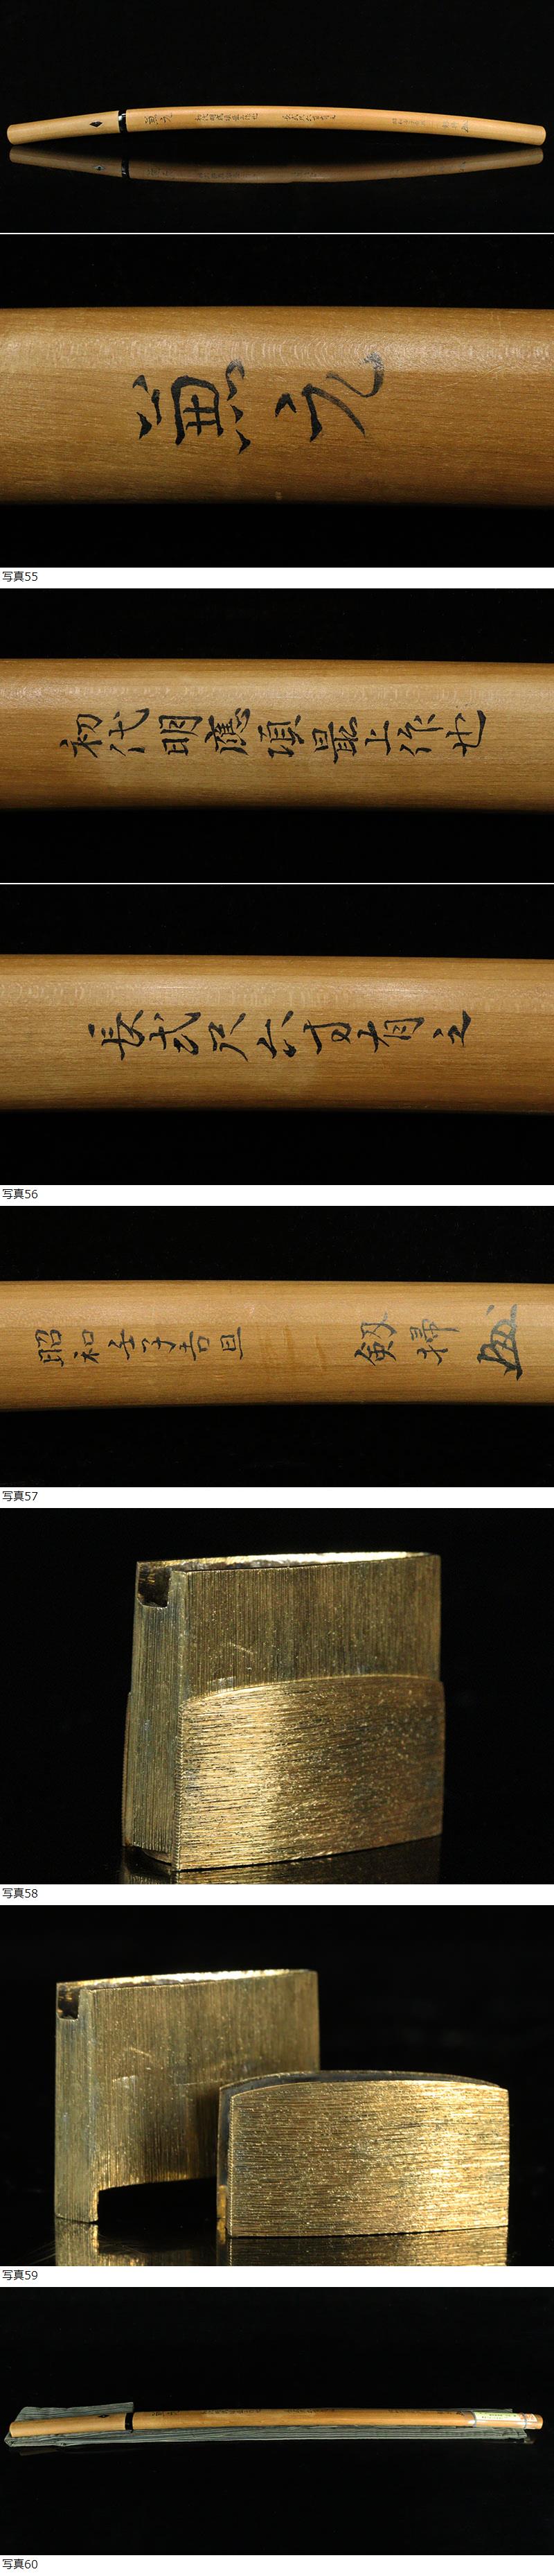 兼元
写真55
初代明應頃最上作也
長弐尺六寸有之
写真56
昭和壬子吉旦 剱掃
写真57
写真58
写真59
写真60